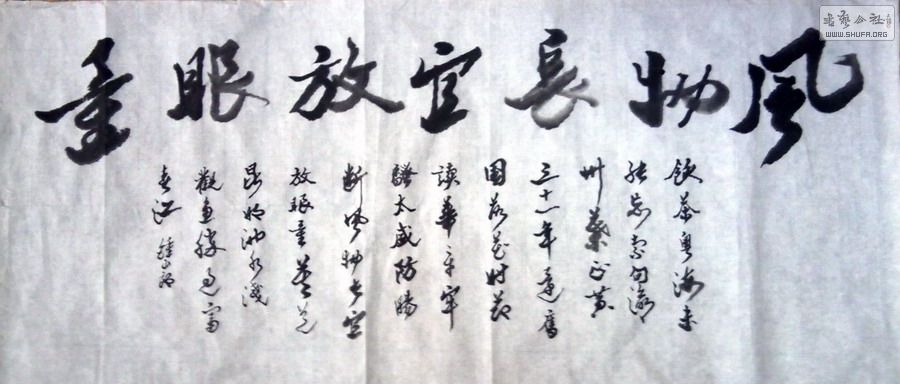 風物長宜放眼量
飲茶粤海未
能忘索句渝
州葉正黄
三十一年還舊
國落花時節
讀華章牢
騷太盛防腸
斷風物長宜
放眼量莫道
昆明池水淺
觀魚勝過富
春江
書藝公社
WWW.SHUFA.ORG